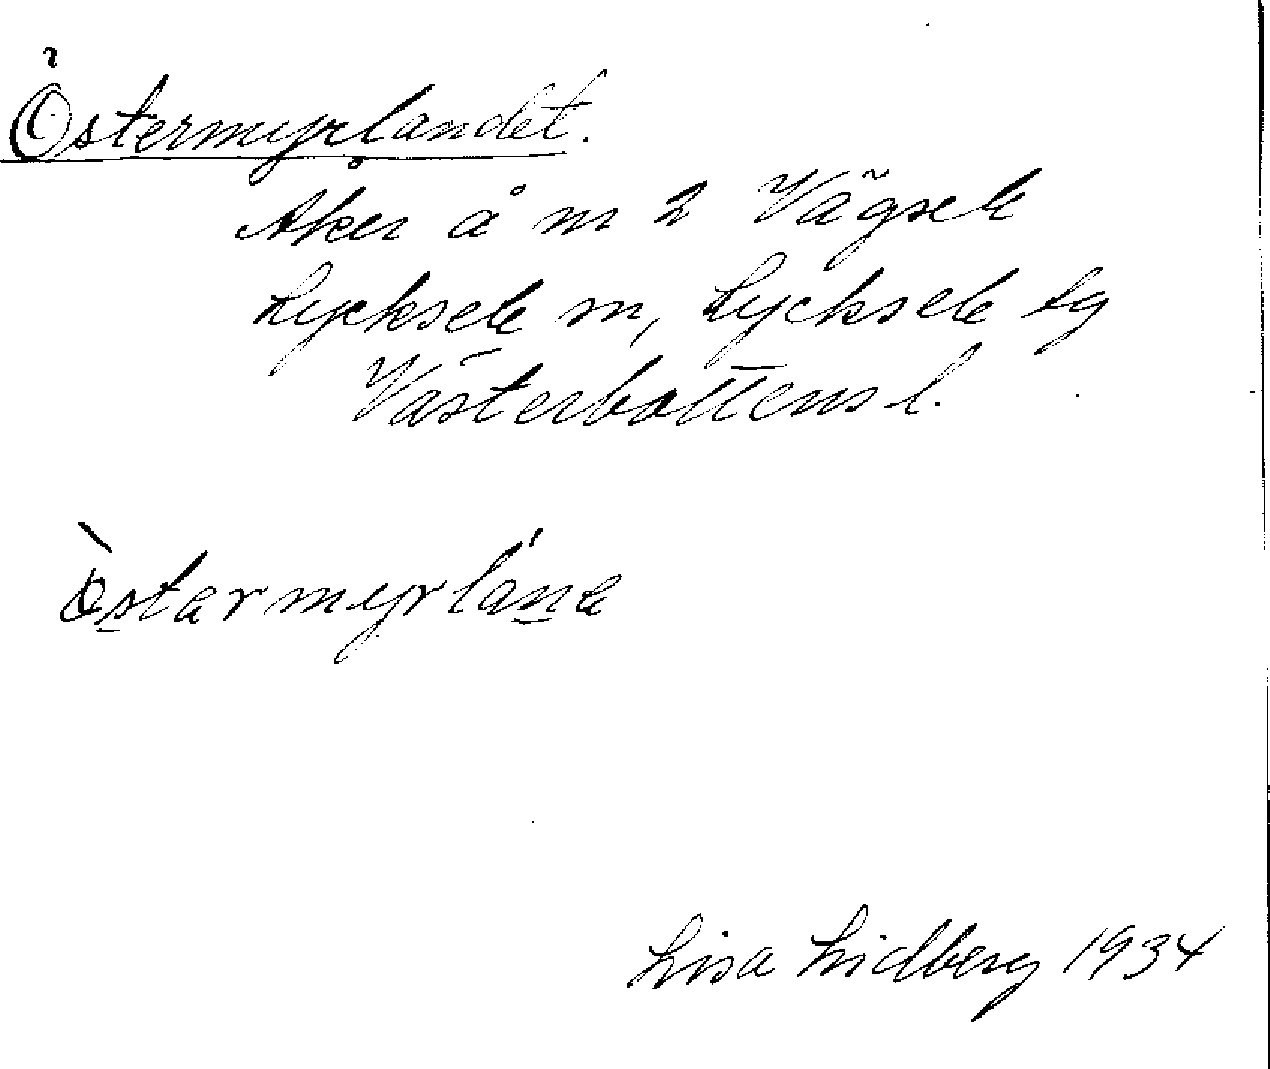 Östermyrlandet.
Åker å nr 2 Vägsele
Lycksele sn, Lycksele lg
Västerbottens l.
Òstarmyrláne
Lisa Lidberg 1934